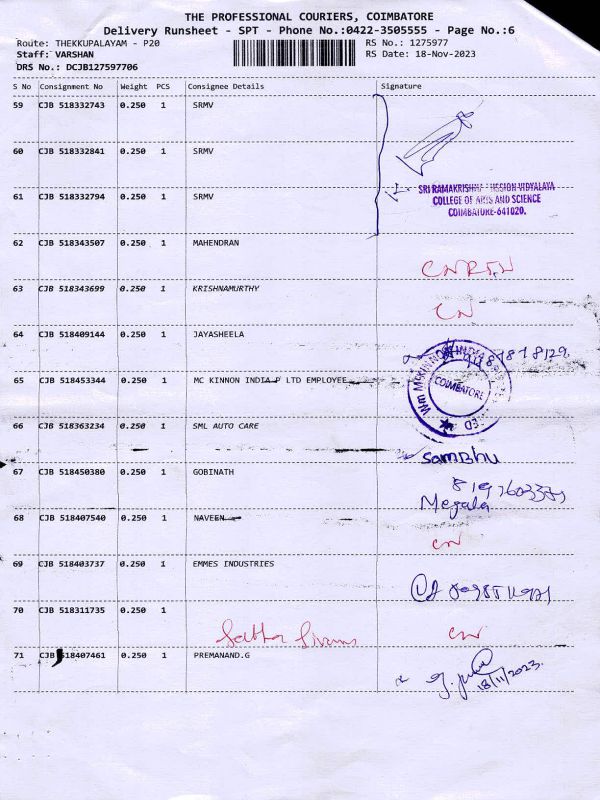 THE PROFESSIONAL COURIERS, COIMBATORE
Delivery Runsheet - SPT - Phone No.:0422-3505555 - Page No.:6
Route: THEKKUPALAYAM - P20
RS No.: 1275977
Staff: VARSHAN
RS Date: 18-Nov-2023
DRS No.: DCJB127597706
S No Consignment No Weight PCS Consignee Details Signature
59 CJB 518332743 0.250 1 SRMV
60 CJB 518332841 0.250 1 SRMV
61 CJB 518332794 0.250 1 SRMV
SRI RAMAKRISHNA MISSION VIDYALAYA
COLLEGE OF ARTS AND SCIENCE
COIMBATORE-641020.
62 CJB 518343507 0.250 1 MAHENDRAN
63 CJB 518343699 0.250 1 KRISHNAMURTHY
CN
64 CJB 518409144 0.250 1 JAYASHEELA
65 CJB 518453344 0.250 1 MC KINNON INDIA P LTD EMPLOYEE
COIMBATORE
66 CJB 518363234 0.250 1 SML AUTO CARE
Sambhu
67 CJB 518450380 0.250 1 GOBINATH
Megala
68 CJB 518407540 0.250 1 NAVEEN
CN
69 CJB 518403737 0.250 1 EMMES INDUSTRIES
70 CJB 518311735 0.250 1
CN
71 CJB 518407461 0.250 1 PREMANAND.G
18/11/2023.